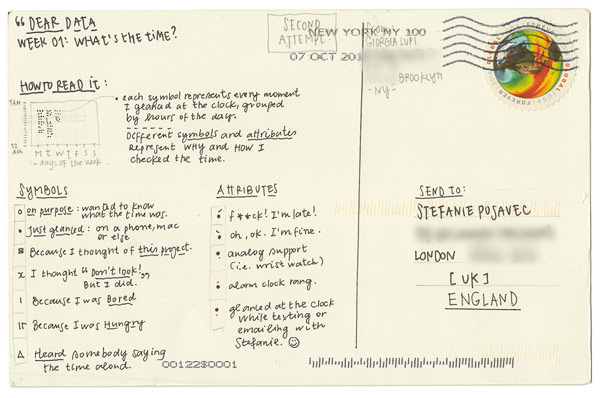 “ DEAR DATA
WEEK 01: WHAT'S THE TIME?
SECOND
ATTEMPT.
NEW YORK NY 100
07 OCT 201
From:
GIORGIA LUPI
BROOKLYN
- NY -
GLOBAL
FOREVER
HOW TO READ IT:
• each symbol represents every moment
I glanced at the clock, grouped
by hours of the day.
Different symbols and attributes
Represent WHY and HOW I
checked the time.
M T W T F S S
- days of the week
SYMBOLS
on purpose: wanted to know
what the time was.
Just glanced: on a phone, mac
or else
Because I thought of this project.
x I thought "Don't look!"
But I did.
Because I was Bored
Because I was Hungry
Δ Heard somebody saying
the time aloud.
ATTRIBUTES
f**ck! I'm late!
oh, ok. I'm fine.
analog support
(i.e. wrist watch)
alarm clock rang.
glanced at the clock
while texting or
emailing with
Stefanie. ☺
00122$0001
SEND TO:
STEFANIE POSAVEC
LONDON
[UK]
ENGLAND